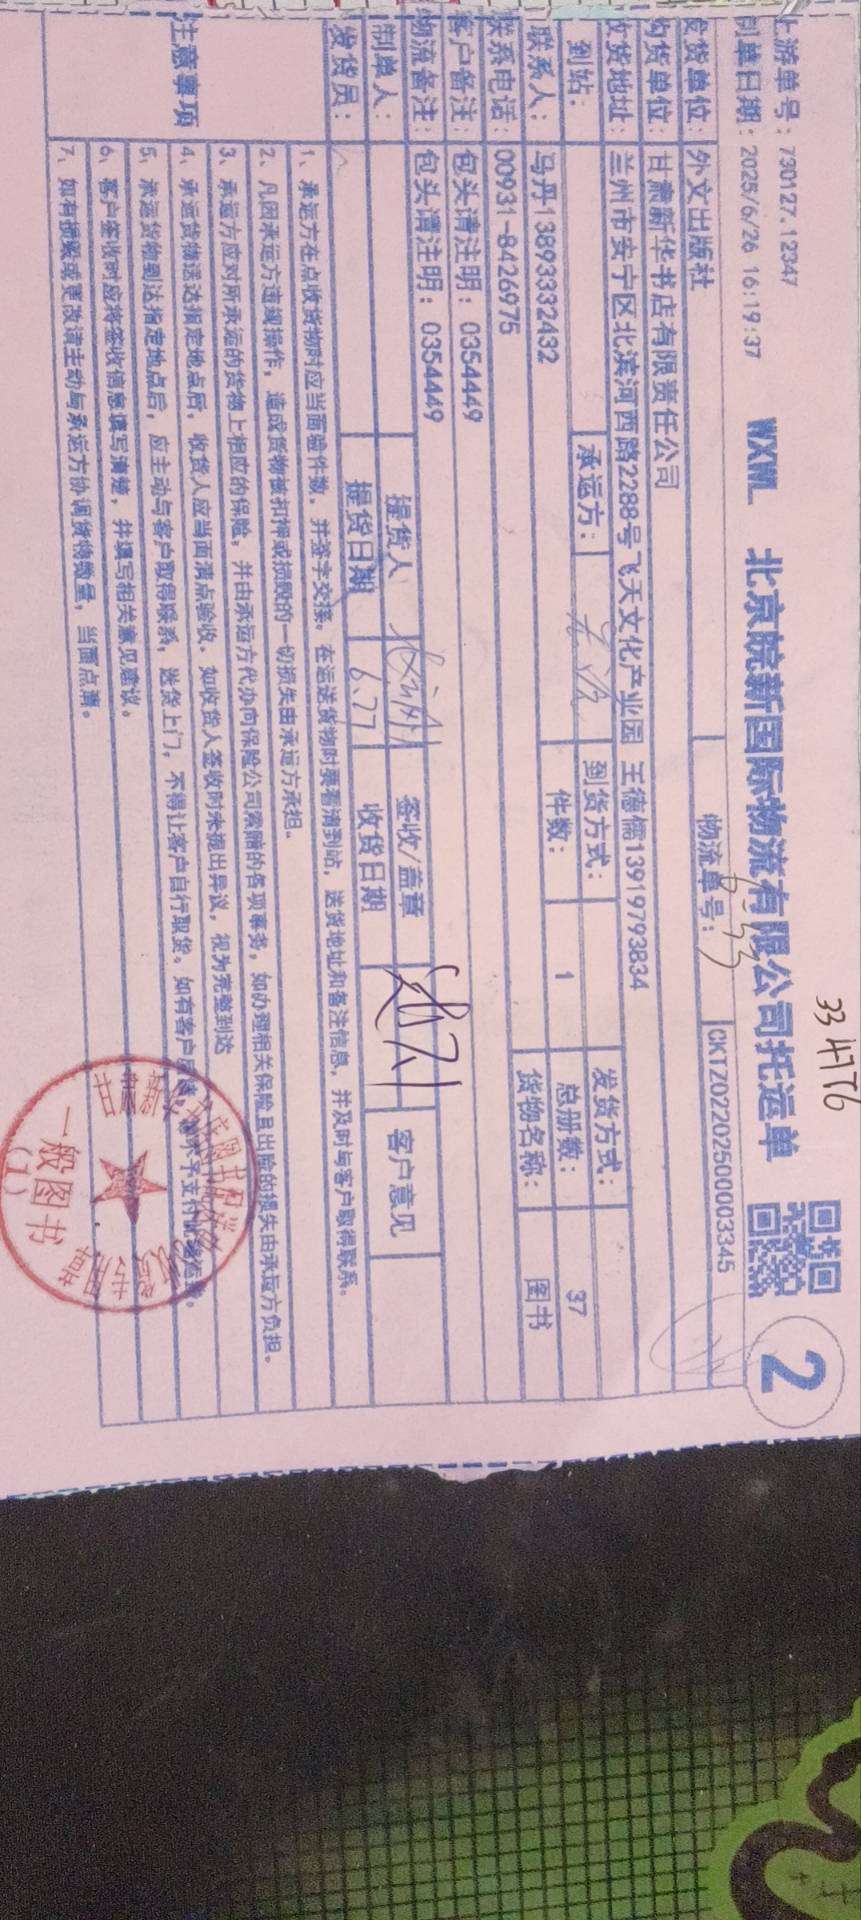 33件76
上游单号：730127.12347
制单日期：2025/6/26 16:19:37
WXWL 北京皖新国际物流有限公司托运单
2
发货单位： 外文出版社 物流单号： CKTZ02202500003345
购货单位： 甘肃新华书店有限责任公司
收货地址： 兰州市安宁区北滨河西路2288号飞天文化产业园 王德儒13919793834
到站： 承运方： 到货方式： 发货方式：
联系人： 马丹13893332432 件数： 1 总册数： 37
联系电话： 00931-8426975 货物名称： 图书
客户备注： 包头请注明：0354449
物流备注： 包头请注明：0354449
制单人： 提货人 签收/盖章 客户意见
发货员： 提货日期 6.27 收货日期
注意事项
1、承运方在点收货物时应当面验件数，并签字交接。在运送货物时要看清到站，送货地址和备注信息，并及时与客户取得联系。
2、凡因承运方违规操作，造成货物被扣押或损毁的一切损失由承运方承担。
3、承运方应对所承运的货物上相应的保险，并由承运方代办向保险公司索赔的各项事务，如办理相关保险且出险的损失由承运方负担。
4、承运货物送达指定地点后，收货人应当面清点验收。如收货人签收时未提出异议，视为完整到达
5、承运货物到达指定地点后，应主动与客户取得联系，送货上门，不得让客户自行取货。如有客户
6、客户签收时应将签收信息填写清楚，并填写相关意见建议。
7、如有损毁或更改请主动与承运方协调货物数量，当面点清。
一般图书
(1)